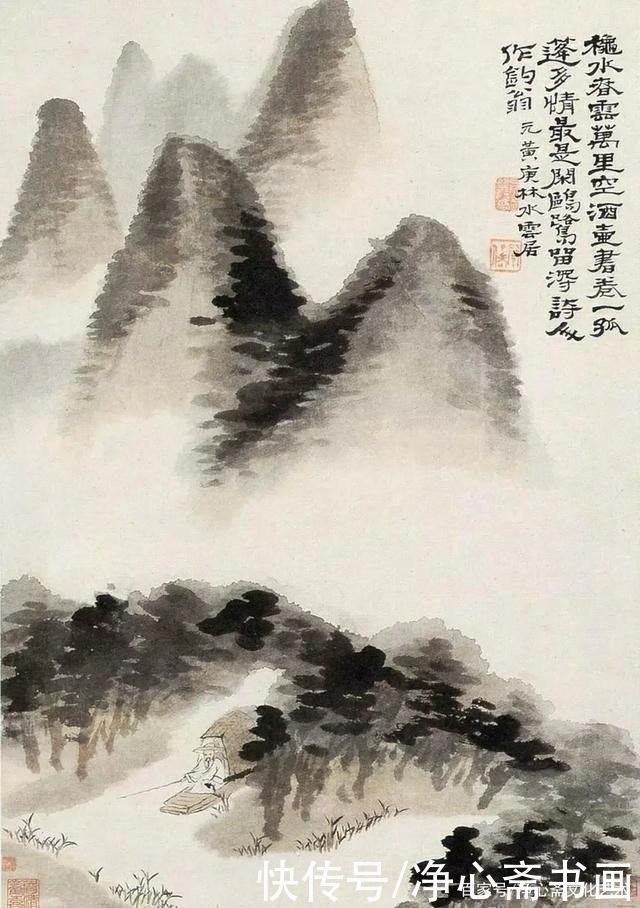 穐水春雲萬里空酒壺書卷一孤
蓬多情最是閑鷗鷺留淂詩人
作釣翁 元黃庚林水雲居
快传号/净心斋书画